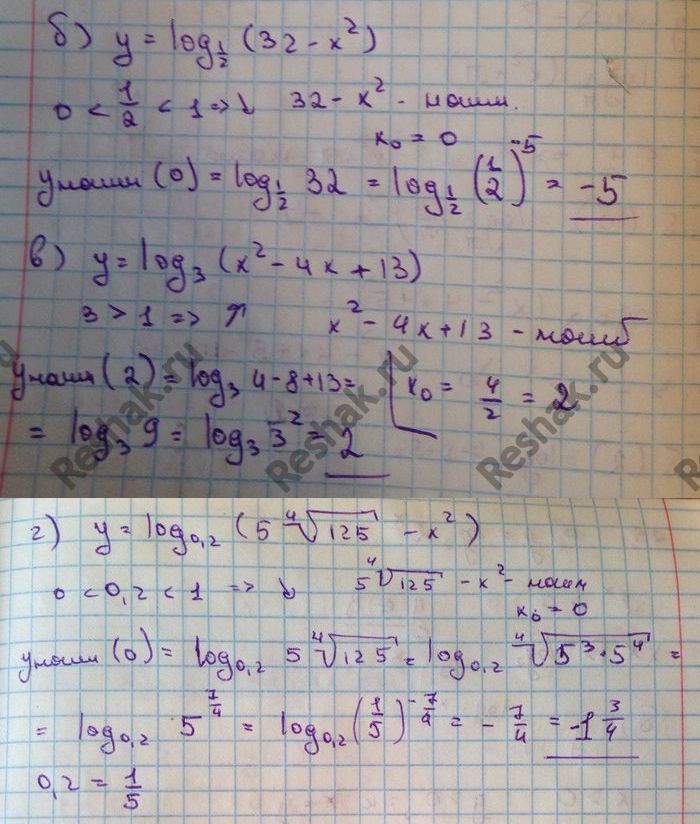 б) y = log_{1/2} (32 - x²)
0 < 1/2 < 1 => ↓ 32 - x² - наим.
x₀ = 0
yнаим (0) = log_{1/2} 32 = log_{1/2} (1/2)^{-5} = -5
в) y = log₃ (x² - 4x + 13)
3 > 1 => ↑ x² - 4x + 13 - наиб
yнаим (2) = log₃ 4 - 8 + 13 = x₀ = 4/2 = 2
= log₃ 9 = log₃ 3² = 2
г) y = log_{0,2} (5 ⁴√125 - x²)
0 < 0,2 < 1 => ↓ 5 ⁴√125 - x² - наим
x₀ = 0
yнаим (0) = log_{0,2} 5 ⁴√125 = log_{0,2} ⁴√(5³ · 5⁴) =
= log_{0,2} 5^{7/4} = log_{0,2} (1/5)^{-7/4} = - 7/4 = -1 3/4
0,2 = 1/5
Reshak.ru
Reshak.ru